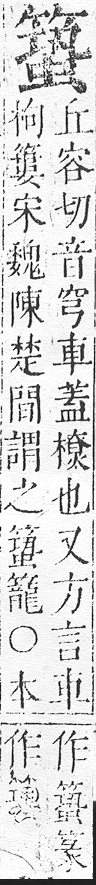 䈪
丘容切音穹車蓋橑也又方言車
枸簍宋魏陳楚間謂之䈪籠○本
作䈪篆
作